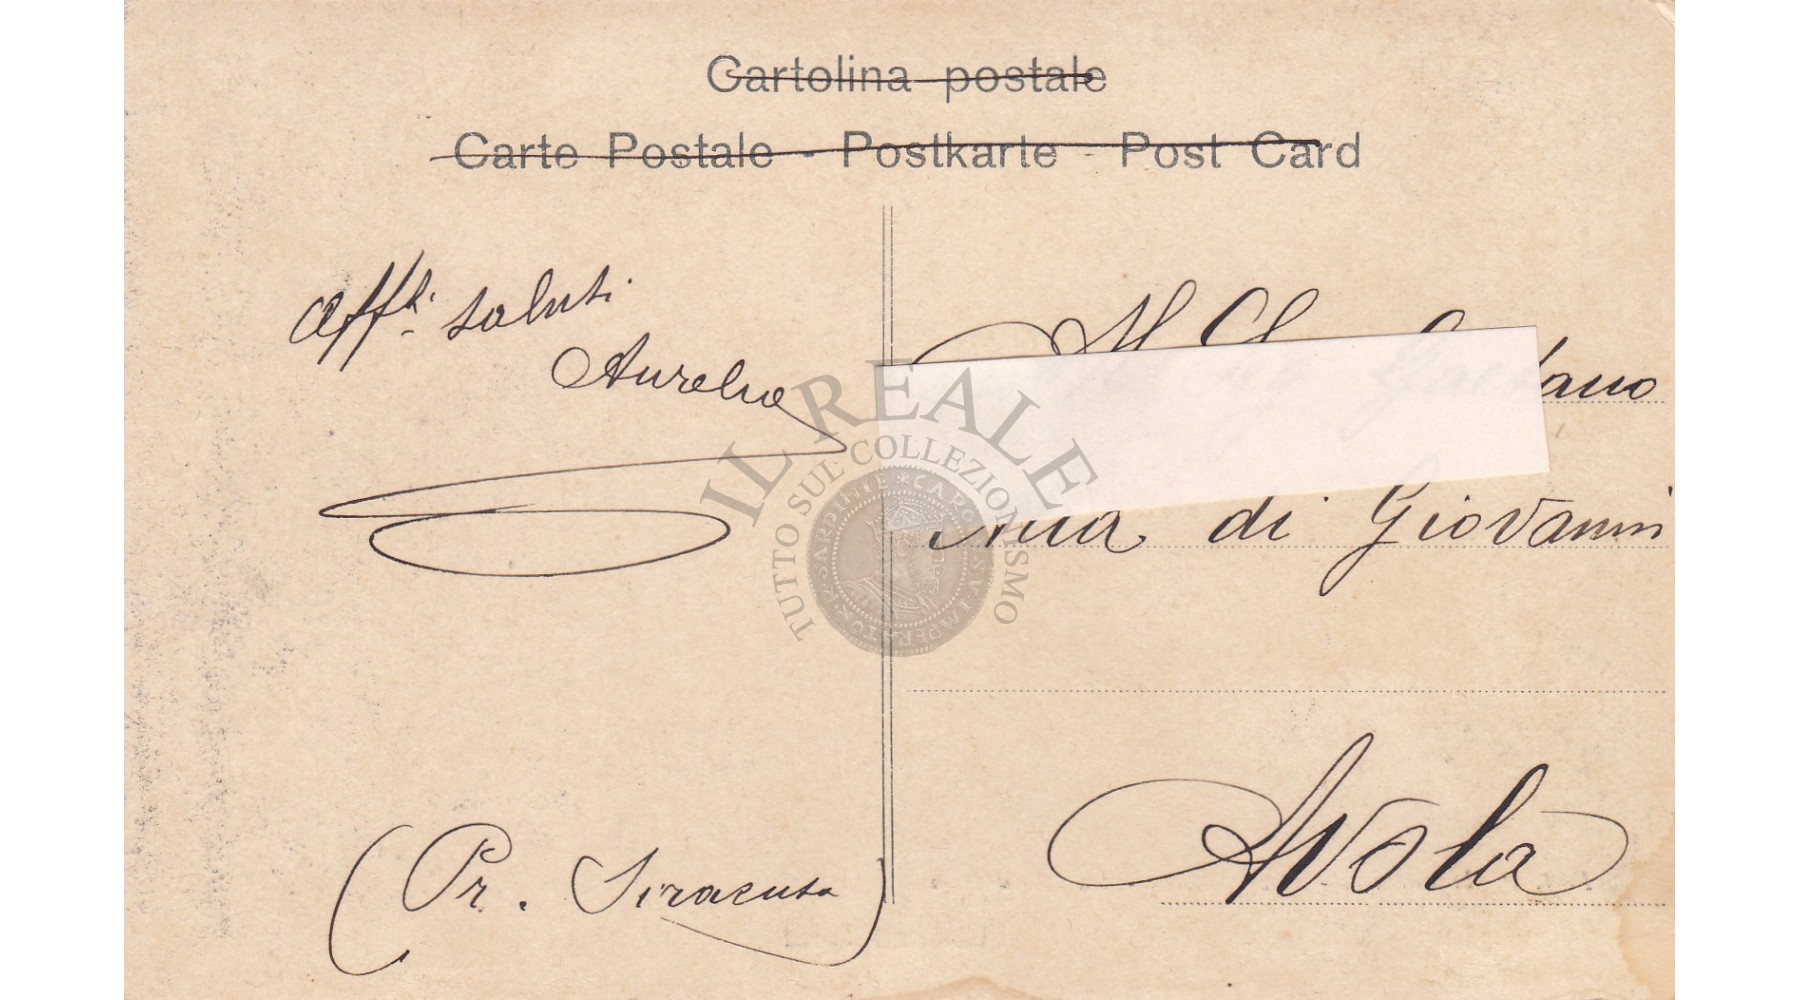 Cartolina postale
Carte Postale - Postkarte - Post Card
Aff.ti saluti
Aurelio
Al
di Giovanni
Avola
(Pr. Siracusa)
IL REALE
TUTTO SUL COLLEZIONISMO